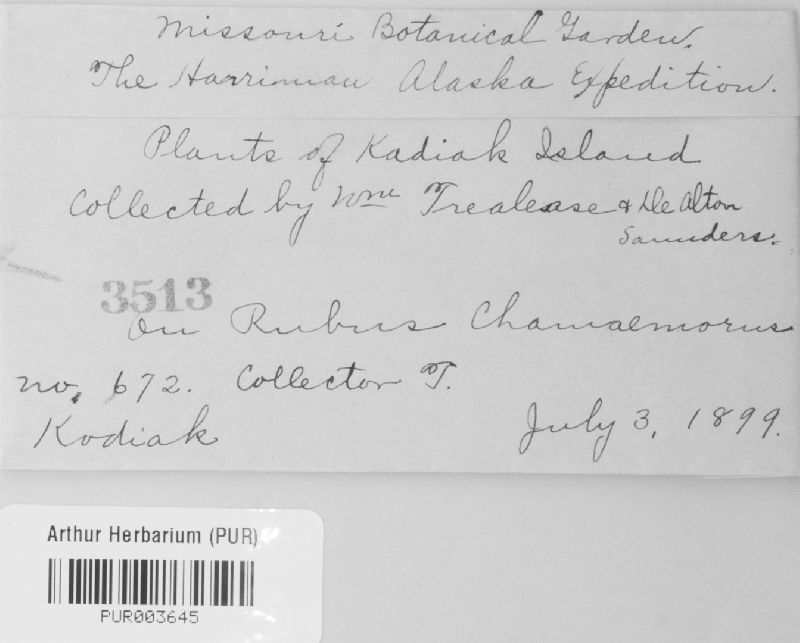 Missouri Botanical Garden.
The Harriman Alaska Expedition.
Plants of Kadiak Island
Collected by Wm Trealease & De Alton
Saunders.
3513
On Rubus Chamaemorus
no. 672. Collector T.
Kodiak July 3, 1899.
Arthur Herbarium (PUR)
PUR003645